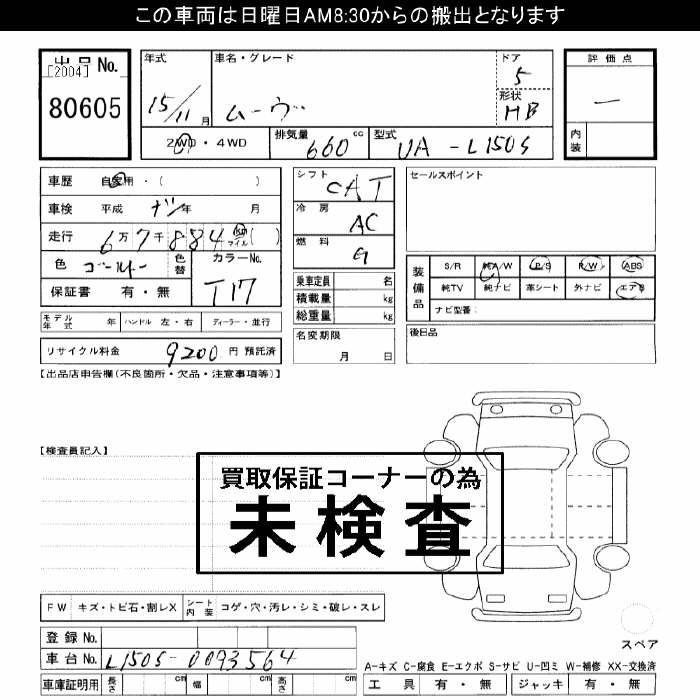 この車両は日曜日AM8:30からの搬出となります
出品 No.
[2004]
80605
年式
15/11月
車名・グレード
ムーヴ
ドア
5
形状
HB
2WD・4WD
排気量
660 cc
型式
UA-L150S
評価点
ー
内装
車歴 自家用・( )
車検 平成 ナシ年 月
走行 6万7千884 km マイル ( )
色 ゴールド 色替
カラーNo.
T17
保証書 有・無
シフト
CAT
冷房
AC
燃料
G
セールスポイント
乗車定員 名
積載量 kg
総重量 kg
装備品
S/R 純A/W P/S P/W ABS
純TV 純ナビ 革シート 外ナビ エアB
ナビ型番:
モデル年式 年 ハンドル 左・右 ディーラー・並行
名変期限
月 日
後日品
リサイクル料金 9200 円 預託済
【出品店申告欄(不良箇所・欠品・注意事項等)】
【検査員記入】
買取保証コーナーの為
未検査
FW キズ・トビ石・割レX シート内装 コゲ・穴・汚レ・シミ・破レ・スレ
スペア
登録 No.
車台 No. L150S-0093564
車庫証明用 長さ cm 幅 cm 高さ cm
A-キズ C-腐食 E-エクボ S-サビ U-凹ミ W-補修 XX-交換済
工具 有・無 ジャッキ 有・無